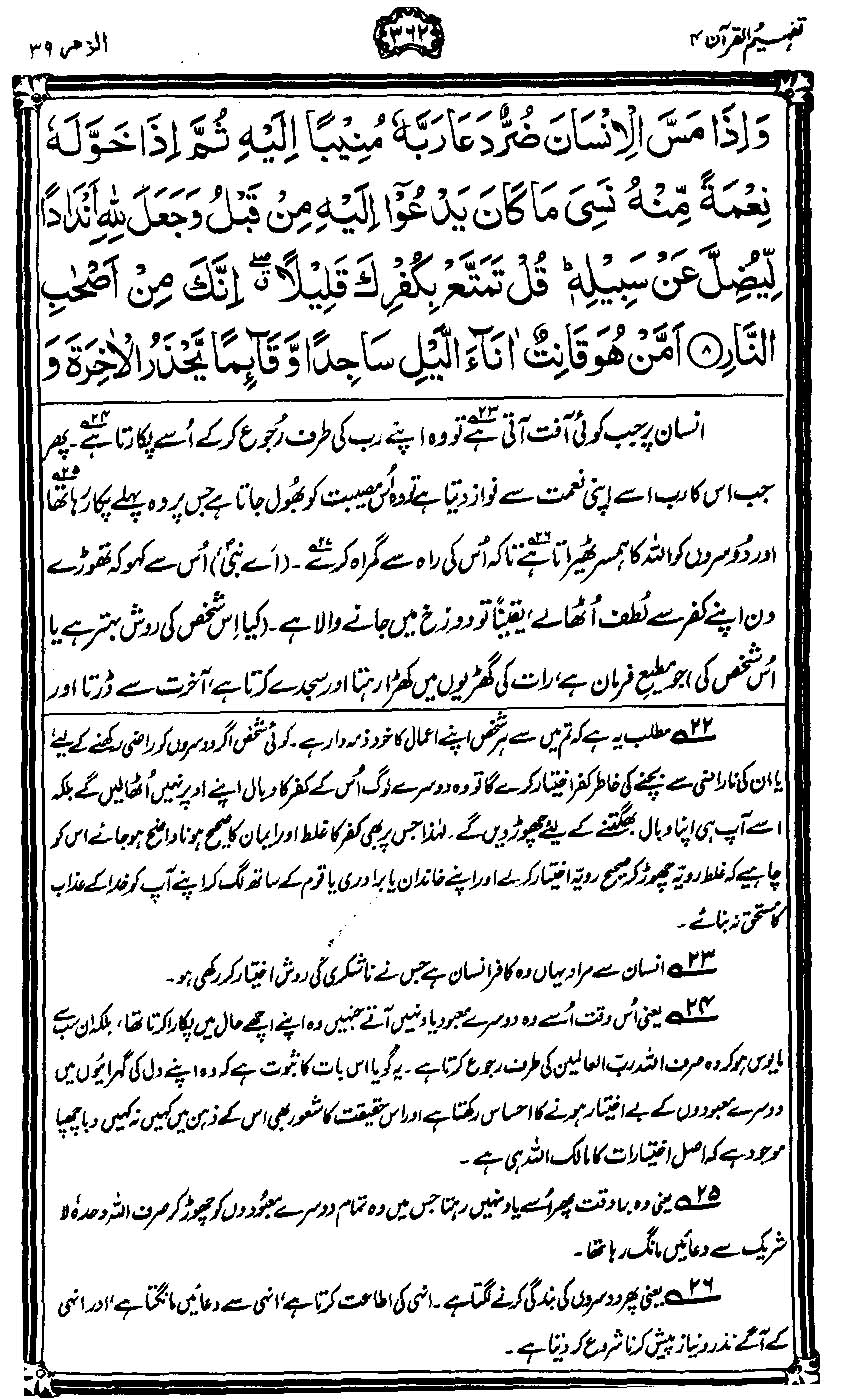 تفہیم القرآن ۴
۳۶۲
الزمر ۳۹
وَاِذَا مَسَّ الْاِنْسَانَ ضُرٌّ دَعَا رَبَّهٗ مُنِيْبًا اِلَيْهِ ثُمَّ اِذَا خَوَّلَهٗ
نِعْمَةً مِّنْهُ نَسِيَ مَا كَانَ يَدْعُوْٓا اِلَيْهِ مِنْ قَبْلُ وَجَعَلَ لِلّٰهِ اَنْدَادًا
لِّيُضِلَّ عَنْ سَبِيْلِهٖ ؕ قُلْ تَمَتَّعْ بِكُفْرِكَ قَلِيْلًا ۖ اِنَّكَ مِنْ اَصْحٰبِ
النَّارِ ۸ اَمَّنْ هُوَ قَانِتٌ اٰنَآءَ الَّيْلِ سَاجِدًا وَّقَآئِمًا يَّحْذَرُ الْاٰخِرَةَ وَ
انسان پر جب کوئی آفت آتی ہے۲۳ تو وہ اپنے رب کی طرف رُجوع کر کے اُسے پکارتا ہے۲۴۔ پھر
جب اس کا رب اسے اپنی نعمت سے نواز دیتا ہے تو وہ اُس مصیبت کو بھُول جاتا ہے جس پر وہ پہلے پکار رہا تھا۲۵
اور دُوسروں کو اللہ کا ہمسر ٹھیراتا ہے۲۶ تاکہ اُس کی راہ سے گمراہ کرے۲۷۔ (اَے نبیؐ) اُس سے کہو کہ تھوڑے
دن اپنے کفر سے لُطف اُٹھا لے، یقیناً تو دوزخ میں جانے والا ہے۔ (کیا اِس شخص کی روش بہتر ہے یا
اُس شخص کی) جو مطیع فرمان ہے، رات کی گھڑیوں میں کھڑا رہتا اور سجدے کرتا ہے، آخرت سے ڈرتا اور
۲۲ مطلب یہ ہے کہ تم میں سے ہر شخص اپنے اعمال کا خود ذمہ دار ہے۔ کوئی شخص اگر دوسروں کو راضی رکھنے کے لیے
یا ان کی ناراضی سے بچنے کی خاطر کفر اختیار کرے گا تو وہ دوسرے لوگ اُس کے کفر کا وبال اپنے اوپر نہیں اُٹھا لیں گے بلکہ
اسے آپ ہی اپنا وبال بھگتنے کے لیے چھوڑ دیں گے۔ لہٰذا جس پر بھی کفر کا غلط اور ایمان کا صحیح ہونا واضح ہو جائے اس کو
چاہیے کہ غلط رویّہ چھوڑ کر صحیح رویّہ اختیار کر لے اور اپنے خاندان یا برادری یا قوم کے ساتھ لگ کر اپنے آپ کو خدا کے عذاب
کا مستحق نہ بنائے۔
۲۳ انسان سے مراد یہاں وہ کافر انسان ہے جس نے ناشکری کی روش اختیار کر رکھی ہو۔
۲۴ یعنی اُس وقت اُسے وہ دوسرے معبود یاد نہیں آتے جنہیں وہ اپنے اچھے حال میں پکارا کرتا تھا، بلکہ ان سب سے
مایوس ہو کر وہ صرف اللہ ربّ العالمین کی طرف رجوع کرتا ہے۔ یہ گویا اس بات کا ثبوت ہے کہ وہ اپنے دل کی گہرائیوں میں
دوسرے معبودوں کے بے اختیار ہونے کا احساس رکھتا ہے اور اس حقیقت کا شعور بھی اس کے ذہن میں کہیں نہ کہیں دبا چھپا
موجود ہے کہ اصل اختیارات کا مالک اللہ ہی ہے۔
۲۵ یعنی وہ برا وقت پھر اُسے یاد نہیں رہتا جس میں وہ تمام دوسرے معبُودوں کو چھوڑ کر صرف اللہ وحدہٗ لا
شریک سے دعائیں مانگ رہا تھا۔
۲۶ یعنی پھر دوسروں کی بندگی کرنے لگتا ہے۔ انہی کی اطاعت کرتا ہے، انہی سے دعائیں مانگتا ہے، اور انہی
کے آگے نذر و نیاز پیش کرنا شروع کر دیتا ہے۔